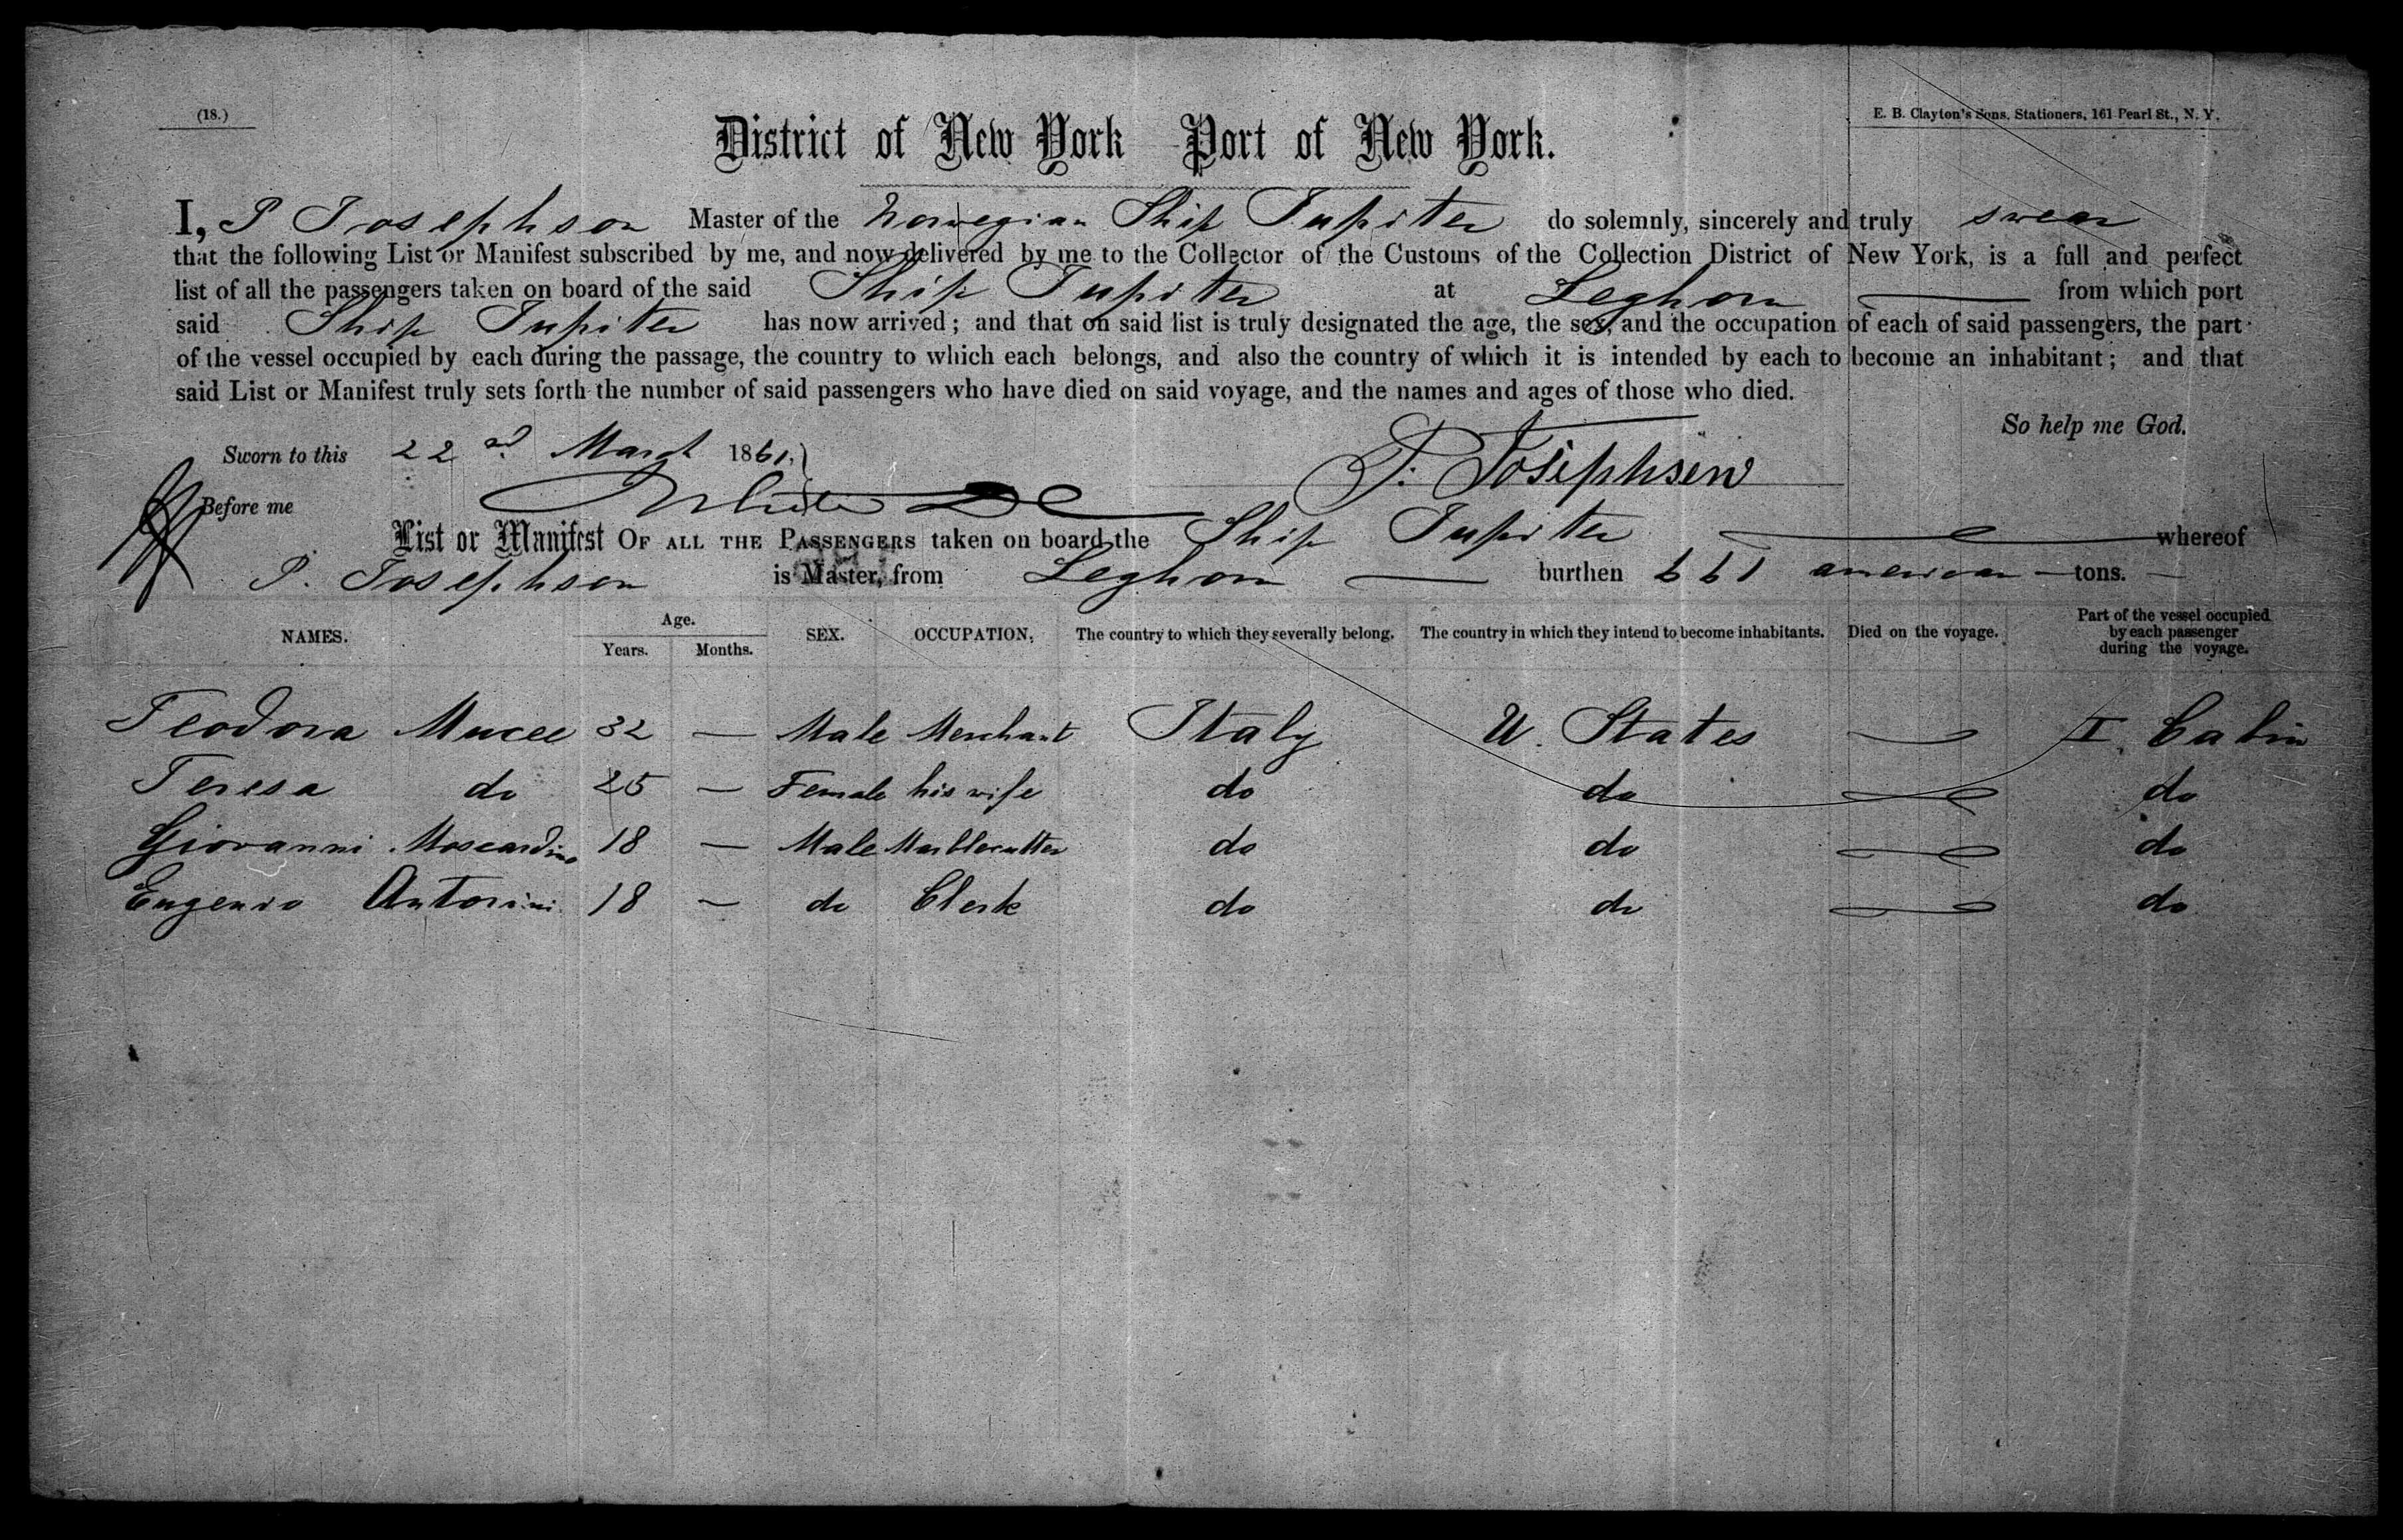 (18.)
E. B. Clayton's Sons, Stationers, 161 Pearl St., N. Y.
District of New York Port of New York.
I, P Josephson Master of the Norwegian Ship Jupiter do solemnly, sincerely and truly swear
that the following List or Manifest subscribed by me, and now delivered by me to the Collector of the Customs of the Collection District of New York, is a full and perfect
list of all the passengers taken on board of the said Ship Jupiter at Leghorn from which port
said Ship Jupiter has now arrived; and that on said list is truly designated the age, the sex, and the occupation of each of said passengers, the part
of the vessel occupied by each during the passage, the country to which each belongs, and also the country of which it is intended by each to become an inhabitant; and that
said List or Manifest truly sets forth the number of said passengers who have died on said voyage, and the names and ages of those who died.
So help me God.
Sworn to this 22nd March 1861.
P. Josephsen
Before me
List or Manifest OF ALL THE PASSENGERS taken on board the Ship Jupiter whereof
P. Josephson is Master, from Leghorn burthen 661 american tons.
NAMES. Age. Years. Months. SEX. OCCUPATION, The country to which they severally belong. The country in which they intend to become inhabitants. Died on the voyage. Part of the vessel occupied by each passenger during the voyage.
Teodora Mucee 32 — Male Merchant Italy U. States — I. Cabin
Teresa do 25 — Female his wife do do — do
Giovanni Moscardino 18 — Male Marblecutter do do — do
Eugenio Antonini 18 — do Clerk do do — do